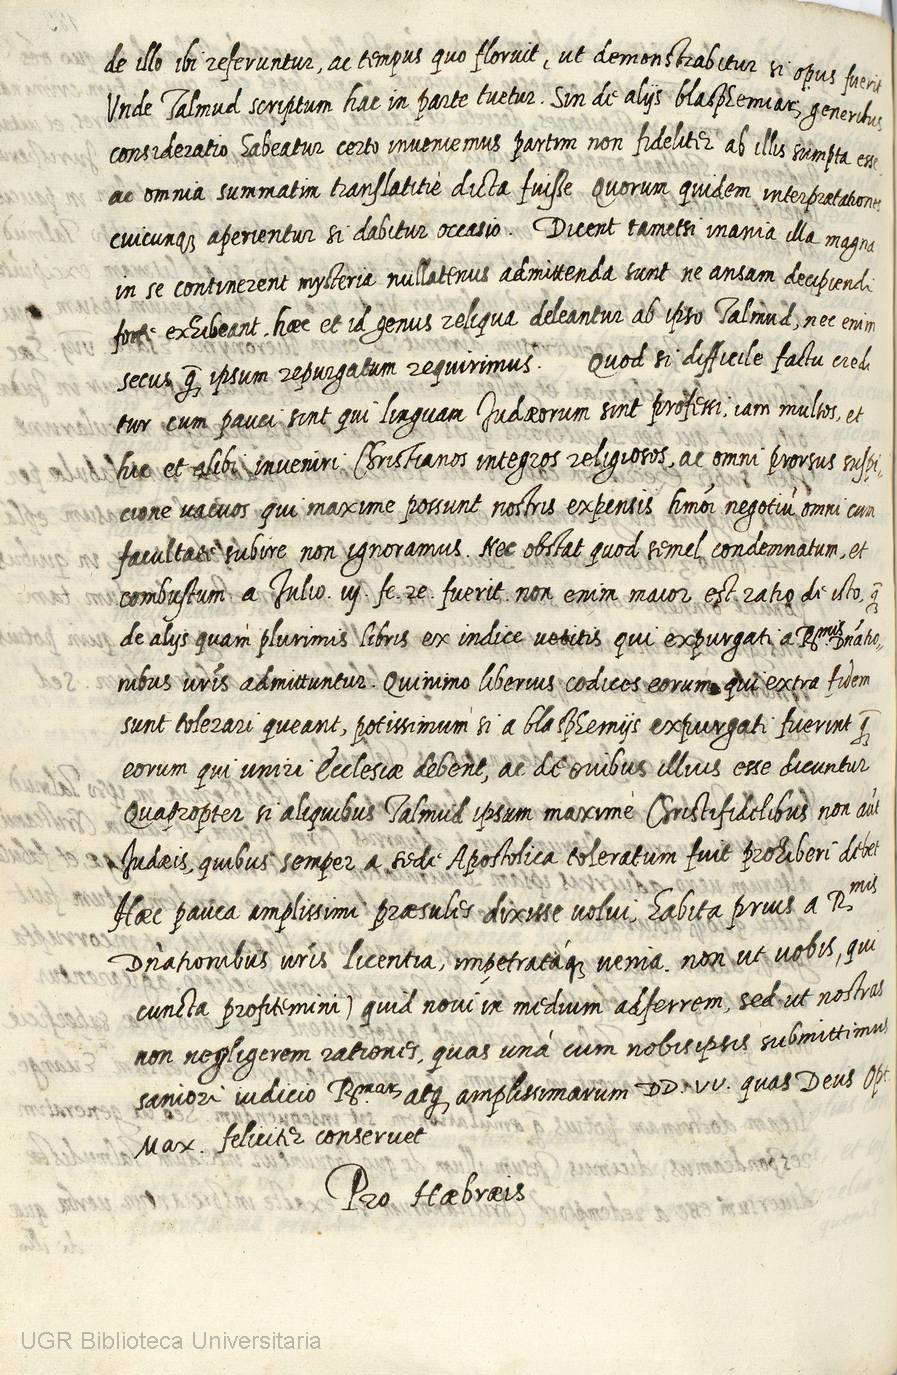 de illo ibi referuntur, ac tempus quo floruit, ut demonstrabitur si opus fuerit
Unde Talmud scriptum hac in parte tuetur. Sin de alijs blasphemiarꝫ generibus
consideratio habeatur certo inveniemus partim non fideliter ab illis sumpta esse
ac omnia summatim translatitiè dicta fuisse Quorum quidem interpretationes
cuicunqꝫ aperientur si dabitur occasio. Dicent tametsi inania illa magna
in se continerent mysteria nullatenus admittenda sunt ne ansam decipiendi
forte exhibeant. hæc et id genus reliqua deleantur ab ipso Talmud, nec enim
secus q̄ ipsum repurgatum requirimus. Quod si difficile factu credi
tur cum pauci sint qui linguam Judæorum sint professi, iam multos, et
hic et alibi inveniri Christianos integros religiosos, ac omni prorsus suspi„
cione vacuos qui maxime possunt nostris expensis hm̄oi negotiū omni cum
facultate subire non ignoramus. Nec obstat quod semel condemnatum, et
combustum a Julio. iij. fe. re. fuerit. non enim maior est ratio de isto, q̄
de alijs quam plurimis libris ex indice vetitis qui expurgati a Rmis Dn̄atio„
nibus vr̄is admittuntur. Quinimo liberius codices eorum qui extra fidem
sunt tolerari queant, potissimum si a blasphemijs expurgati fuerint q̄
eorum qui uniri Ecclesiæ debent, ac de ovibus illius esse dicuntur
Quapropter si aliquibus Talmud ipsum maximè Christifidelibus non aūt
Judæis, quibus semper a sede Apostolica toleratum fuit prohiberi debet
Hæc pauca amplissimi præsules dixisse volui, habita prius a Rmis
Dn̄ationibus vr̄is licentia, impetratáqꝫ venia. non ut vobis, qui
cuncta profitemini) quid novi in medium adferrem, sed ut nostras
non negligerem rationes, quas unà cum nobisipsis submittimus
saniori iudicio Rmarꝫ atqꝫ amplissimarum DD. VV. quas Deus Opt.
Max. feliciter conservet
Pro Hæbræis
UGR Biblioteca Universitaria